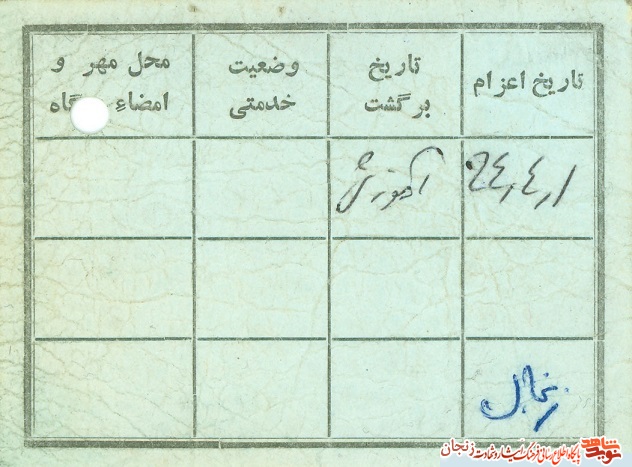 تاریخ اعزام
تاریخ برگشت
وضعیت خدمتی
محل مهر و امضاء گاه
۶۴٫۴٫۱
آموزش
زنجان
نوید شاهد
پایگاه اطلاع رسانی فرهنگ ایثار و شهادت زنجان